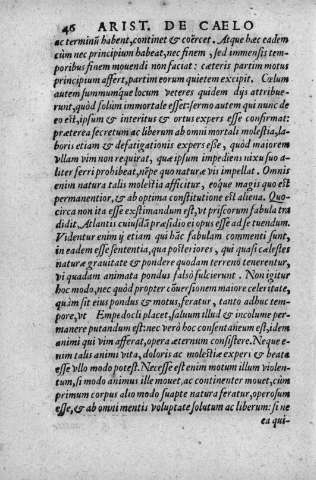 46 ARIST. DE CAELO
ac terminũ habent, continet & coërcet. Atque hæc eadem
cùm nec principium habeat, nec finem, sed immensis tem-
poribus finem mouendi non faciat: cæteris partim motus
principium affert, partim eorum quietem excipit. Cælum
autem summumque locum veteres quidem dijs attribue-
runt, quòd solùm immortale esset: sermo autem qui nunc de
eo est, ipsum & interitus & ortus expers esse confirmat:
præterea secretum ac liberum ab omni mortali molestia, la-
boris etiam & defatigationis expers esse, quòd maiorem
vllam vim non requirat, quæ ipsum impediens nixu suo a-
liter ferri prohibeat, népe quo naturæ vis impellat. Omnis
enim natura talis molestia afficitur, eoque magis quo est
permanentior, & ab optima constitutione est aliena. Quo-
circa non ita esse existimandum est, vt priscorum fabula tra
didit, Atlantis cuiusdã præsidio ei opus esse ad se tuendum.
Videntur enim ij etiam qui hãc fabulam commenti sunt,
in eadem esse sententia, qua posteriores, qui quasi cælestes
naturæ grauitate & pondere quodam terreno tenerentur,
vi quadam animata pondus falsò fulcierunt. Non igitur
hoc modo, nec quòd propter cõuersionem maiore celeritate,
quàm sit eius pondus & motus, feratur, tanto adhuc tem-
pore, vt Empedocli placet, saluum illud & incolume per-
manere putandum est: nec verò hoc consentaneum est, idem
animi qui vim afferat, opera æternum consistere. Neque e-
nim talis animi vita, doloris ac molestiæ expers & beata
esse vllo modo potest. Necesse est enim motum illum violen-
tum, si modò animus ille mouet, ac continenter mouet, cùm
primum corpus alio modo suapte natura feratur, operosum
esse, & ab omni mentis voluptate solutum ac liberum: si ne
ea qui-